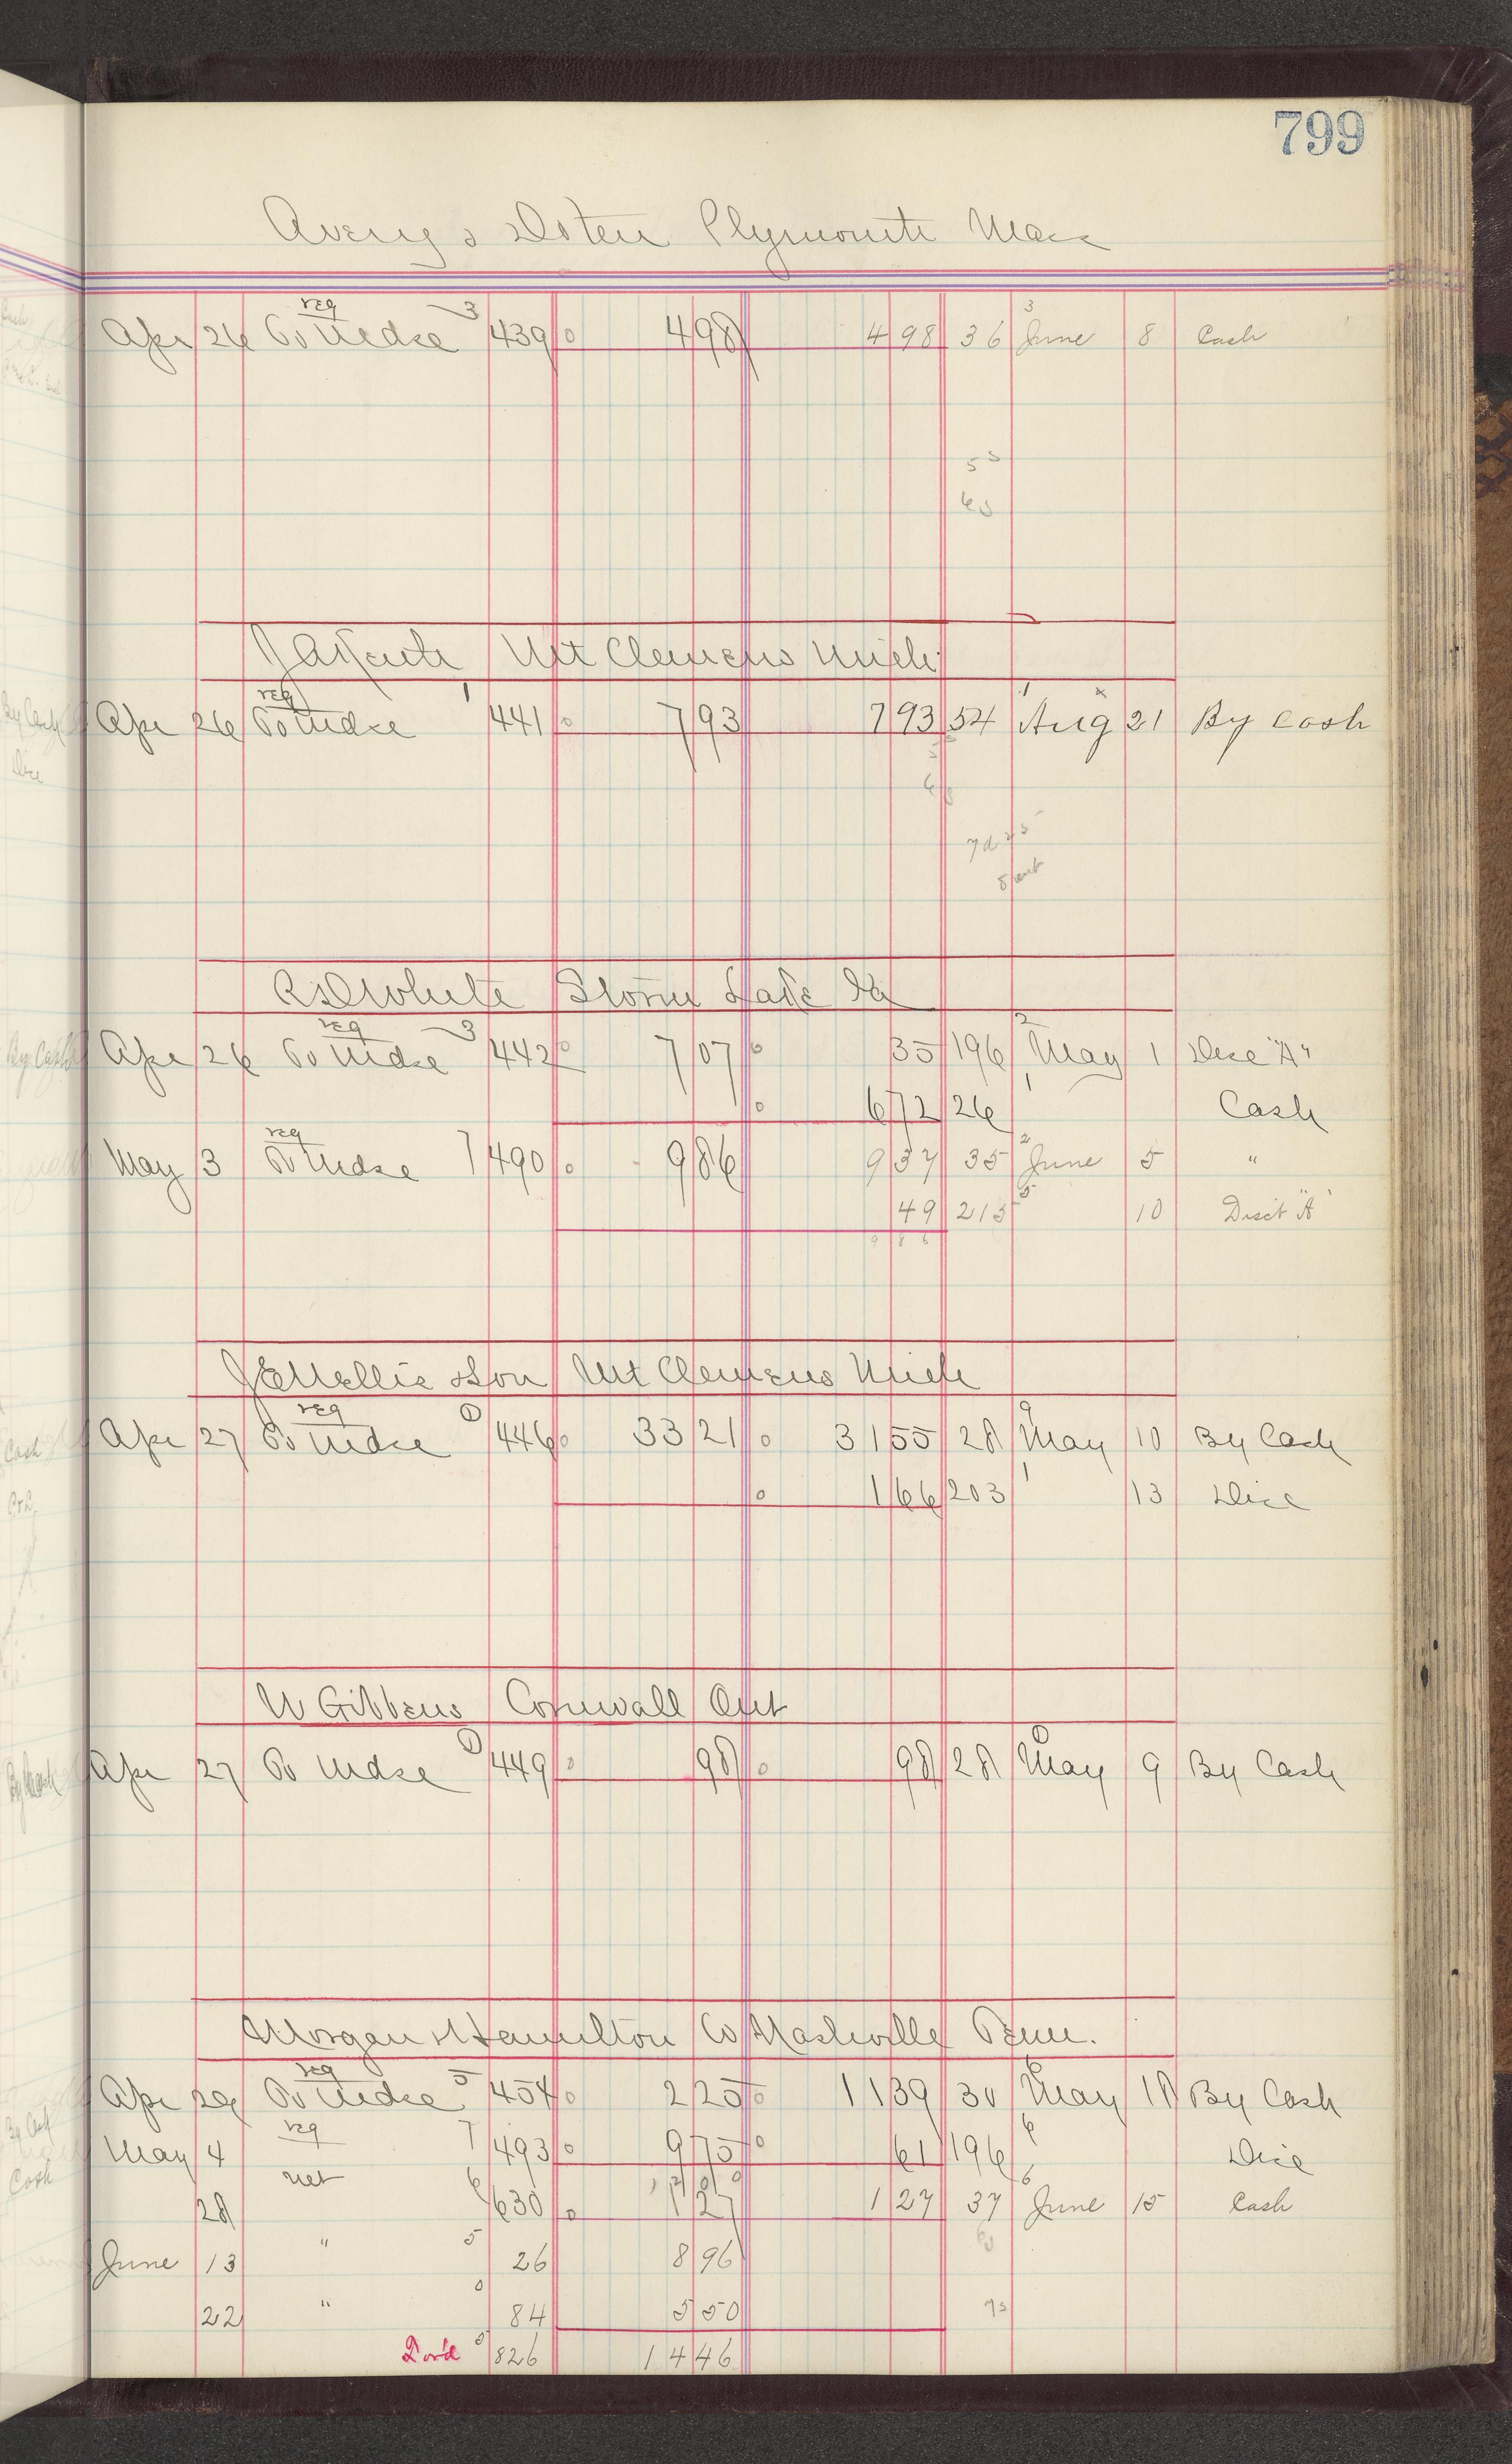 799
Avery & Doten Plymouth Mass
reg 3 3
Apr 26 To Mdse 439 4 98 4 98 36 June 8 Cash
Mt Clemens Mich
reg 1 1
Apr 26 To Mdse 441 7 93 7 93 54 Aug 21 By Cash
R S White Storm Lake Ia
reg 3 2
Apr 26 To Mdse 442 7 07 35 196 May 1 Disc "A"
6 72 26 1 Cash
reg 2
May 3 To Mdse 7 490 9 86 9 37 35 June 5 "
49 215 5 10 Disct "A"
9 86
J E Nellis & Son Mt Clemens Mich
reg 1 9
Apr 27 To Mdse 446 33 21 31 55 28 May 10 By Cash
1 66 203 1 13 Disc
W Gibbens Cornwall Ont
1 1
Apr 27 To Mdse 449 98 98 28 May 9 By Cash
Morgan & Hamilton Co Nashville Tenn.
reg 5 6
Apr 29 To Mdse 454 2 25 11 39 30 May 18 By Cash
reg
May 4 7 493 9 75 61 196 6 Disc
net 12 00
28 6 630 1 27 1 27 37 6 June 15 Cash
June 13 " 5 26 8 96
22 " 0 84 5 50
Ford 5 826 14 46